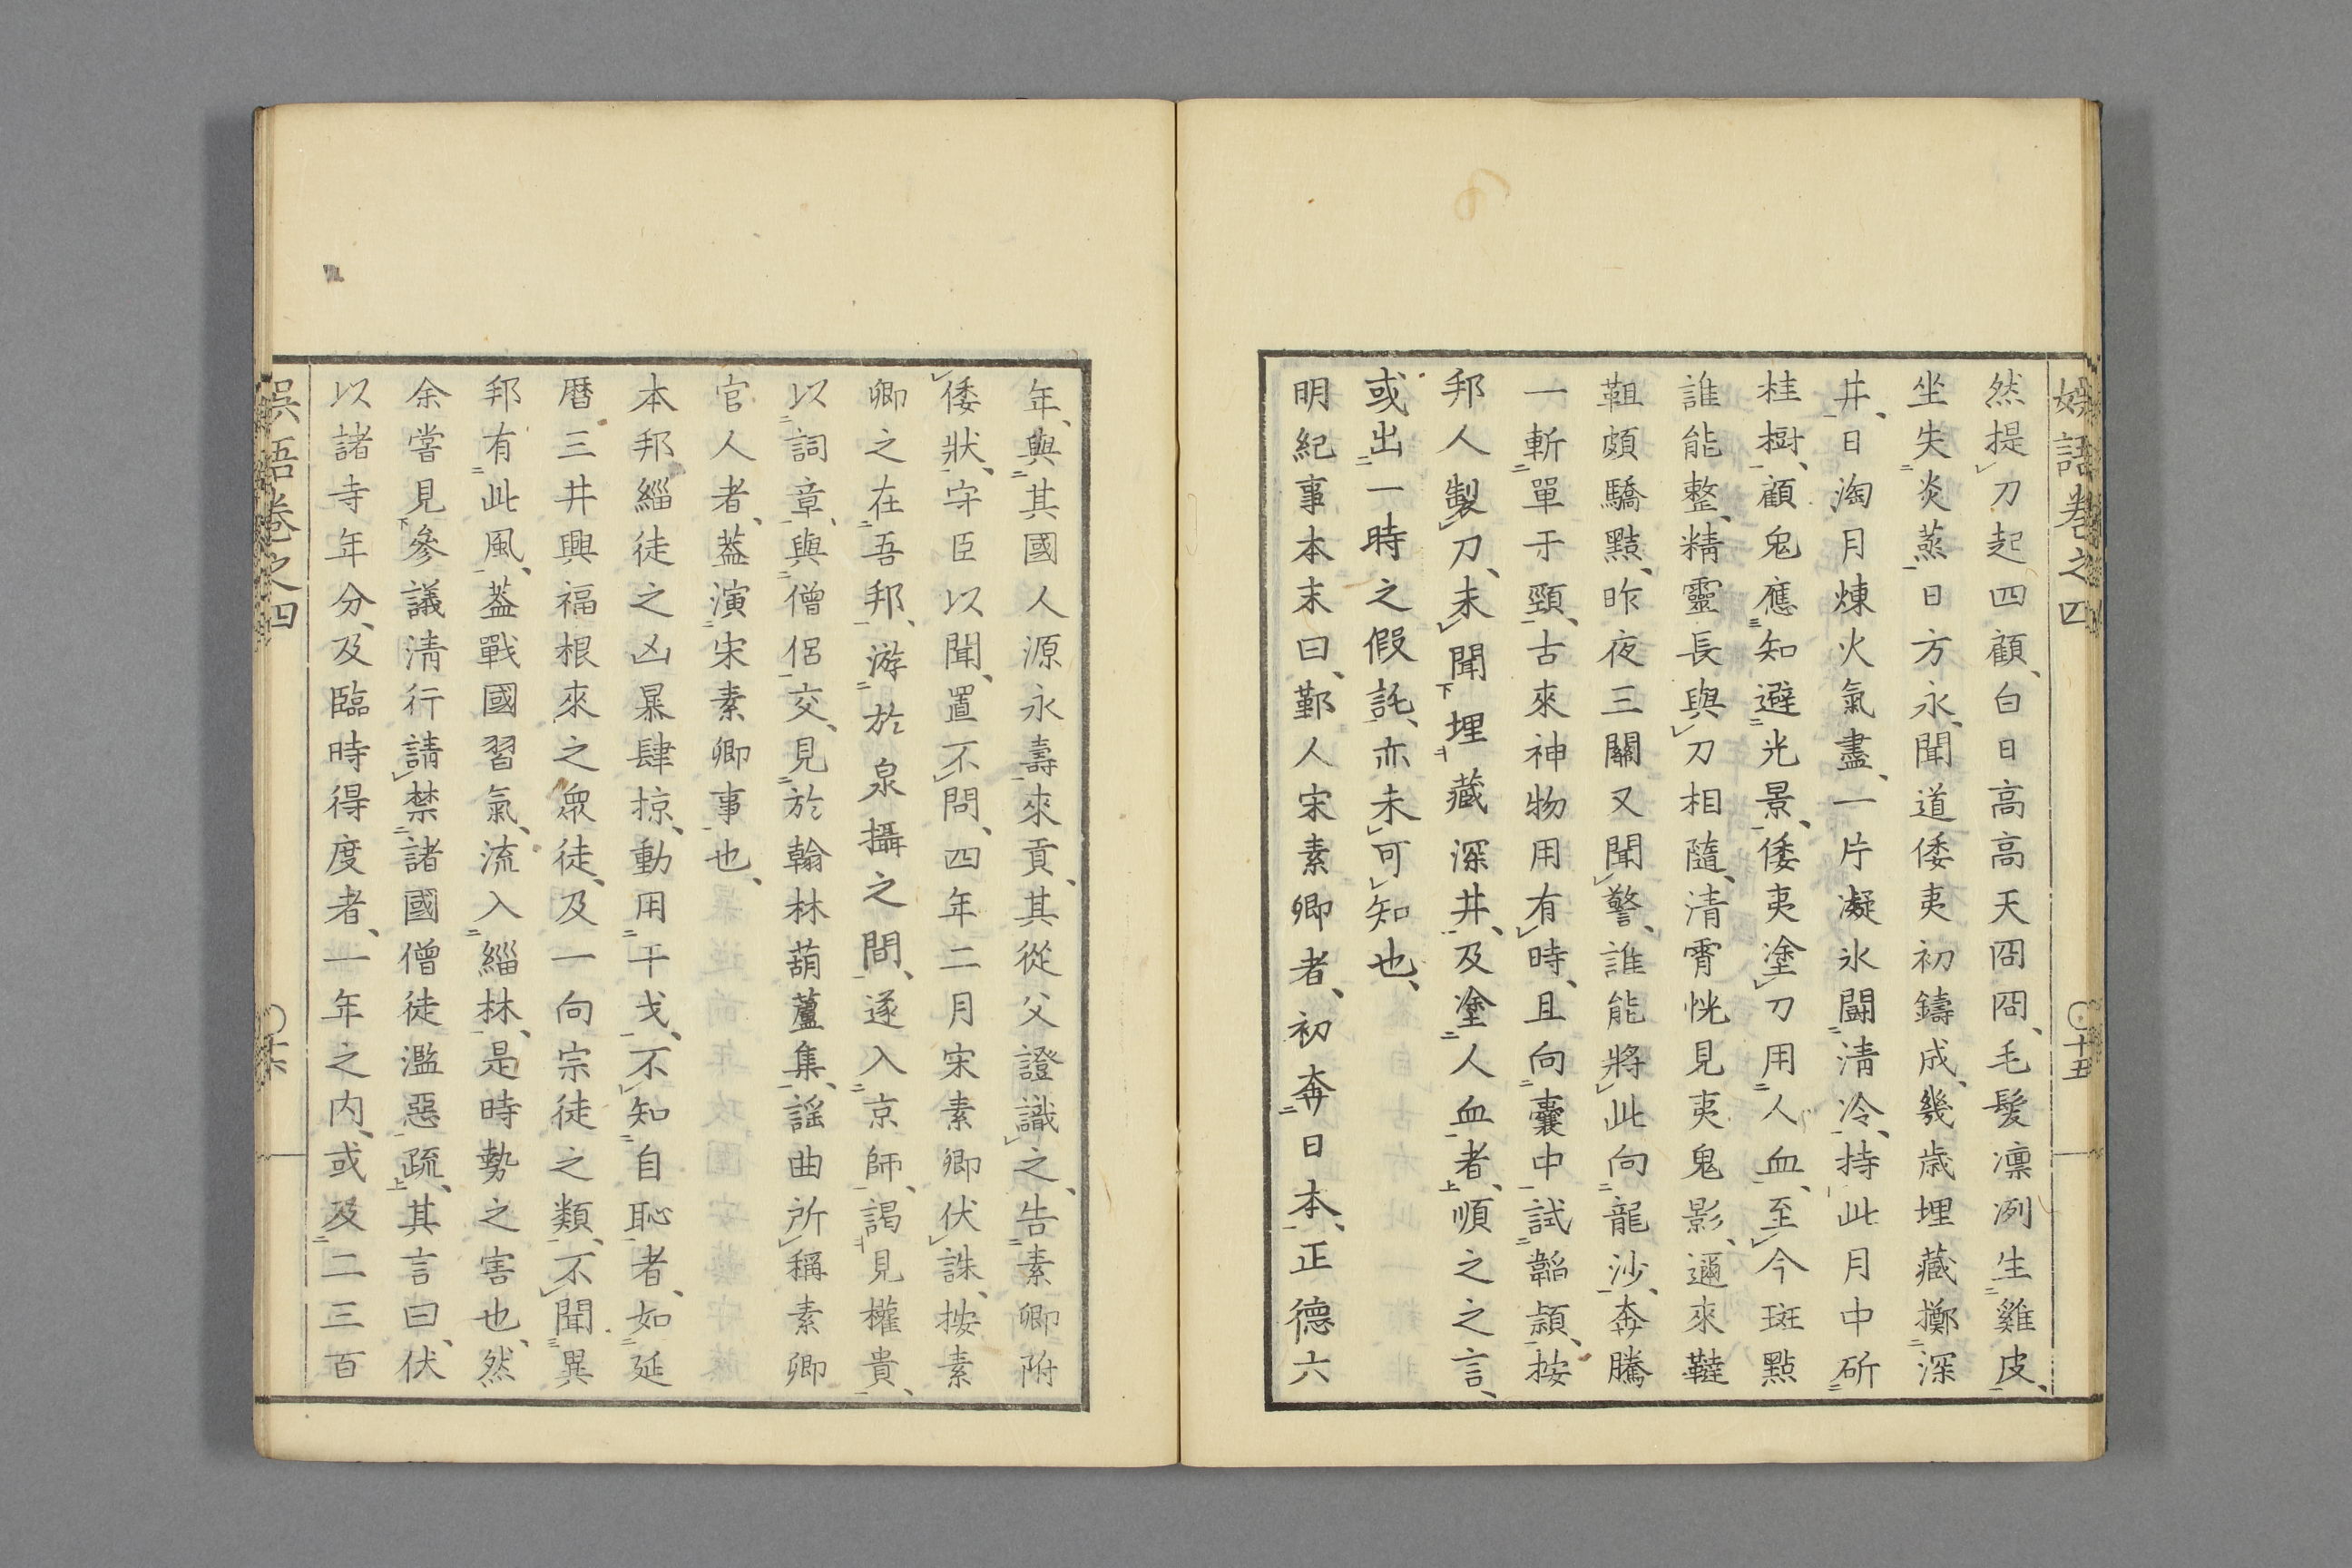 娯語卷之四 〇十五
然提刀起四顧、白日高高天冏冏、毛髪凛冽生雞皮、
坐失炎蒸日方永、聞道倭夷初鑄成、幾歳埋藏擲深
井、日淘月煉火氣盡、一片凝氷闘清冷、持此月中斫
桂樹、顧兎應知避光景、倭夷塗刀用人血、至今斑點
誰能整、精靈長與刀相隨、清霄恍見夷鬼影、邇來韃
靼頗驕黠、昨夜三關又聞警、誰能將此向龍沙、奔騰
一斬單于頸、古來神物用有時、且向囊中試韜頴、按
邦人製刀、未聞埋藏深井、及塗人血者、順之之言、
或出一時之假託、亦未可知也、
明紀事本末曰、鄞人宋素卿者、初奔日本、正德六
年、與其國人源永壽來貢、其從父證識之、告素卿附
倭狀、守臣以聞、置不問、四年二月宋素卿伏誅、按素
卿之在吾邦、游於泉攝之間、遂入京師、謁見權貴、
以詞章、與僧侶交、見於翰林葫蘆集、謡曲所稱素卿
官人者、葢演宋素卿事也、
本邦緇徒之凶暴肆掠、動用干戈、不知自恥者、如延
暦三井興福根來之衆徒、及一向宗徒之類、不聞異
邦有此風、葢戰國習氣、流入緇林、是時勢之害也、然
余嘗見參議清行請禁諸國僧徒濫惡疏、其言曰、伏
以諸寺年分、及臨時得度者、一年之内、或及二三百
娯語卷之四 〇十六